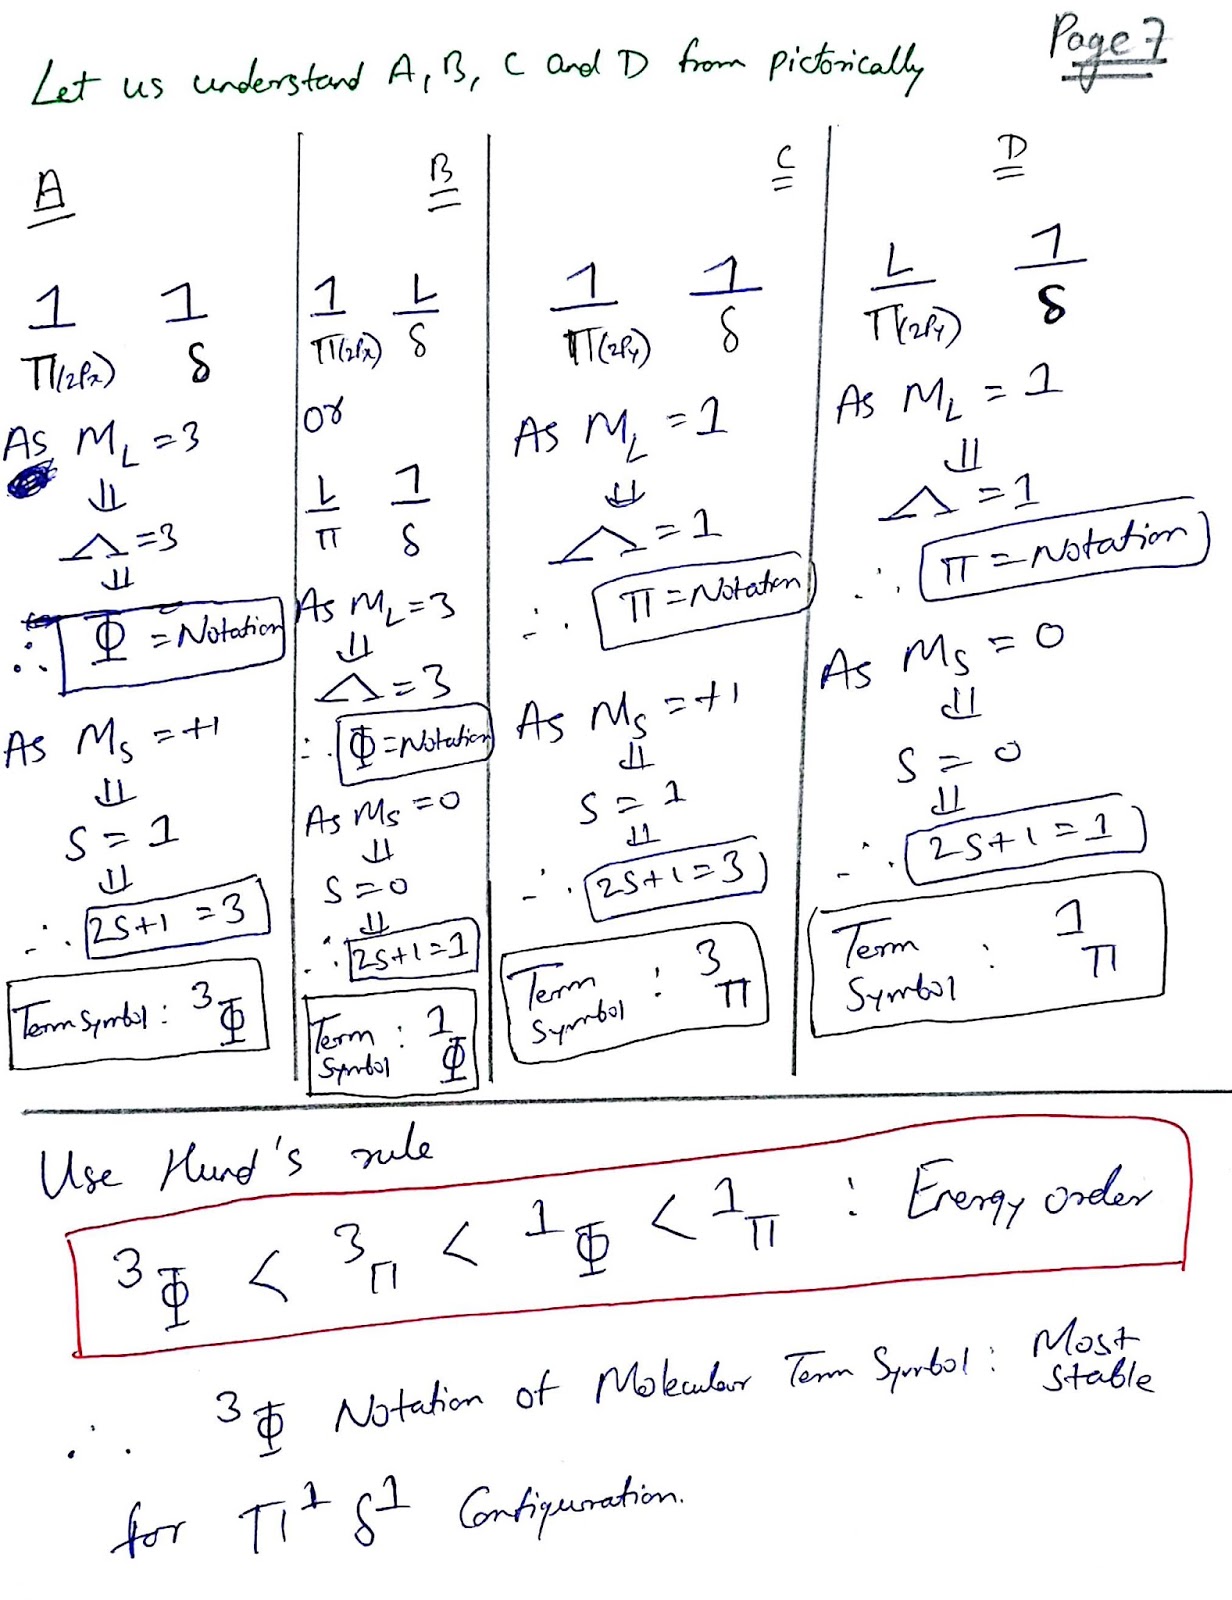 Page 7
Let us understand A, B, C and D from pictorically
A
1 1
Π(2Px) δ
As M_L = 3
⇓
Λ = 3
⇓
∴ Φ = Notation
As M_S = +1
⇓
S = 1
⇓
∴ 2S+1 = 3
Term Symbol : ³Φ
B
1 L
Π(2Px) δ
or
L 1
Π δ
As M_L = 3
⇓
Λ = 3
∴ Φ = Notation
As M_S = 0
⇓
S = 0
⇓
∴ 2S+1 = 1
Term : ¹Φ
Symbol
C
1 1
Π(2Py) δ
As M_L = 1
⇓
Λ = 1
∴ Π = Notation
As M_S = +1
⇓
S = 1
⇓
∴ 2S+1 = 3
Term : ³Π
Symbol
D
L 1
Π(2Py) δ
As M_L = 1
⇓
Λ = 1
∴ Π = Notation
As M_S = 0
⇓
S = 0
⇓
∴ 2S+1 = 1
Term : ¹Π
Symbol
Use Hund's rule
³Φ < ³Π < ¹Φ < ¹Π : Energy order
∴ ³Φ Notation of Molecular Term Symbol : Most stable
for Π¹ δ¹ Configuration.